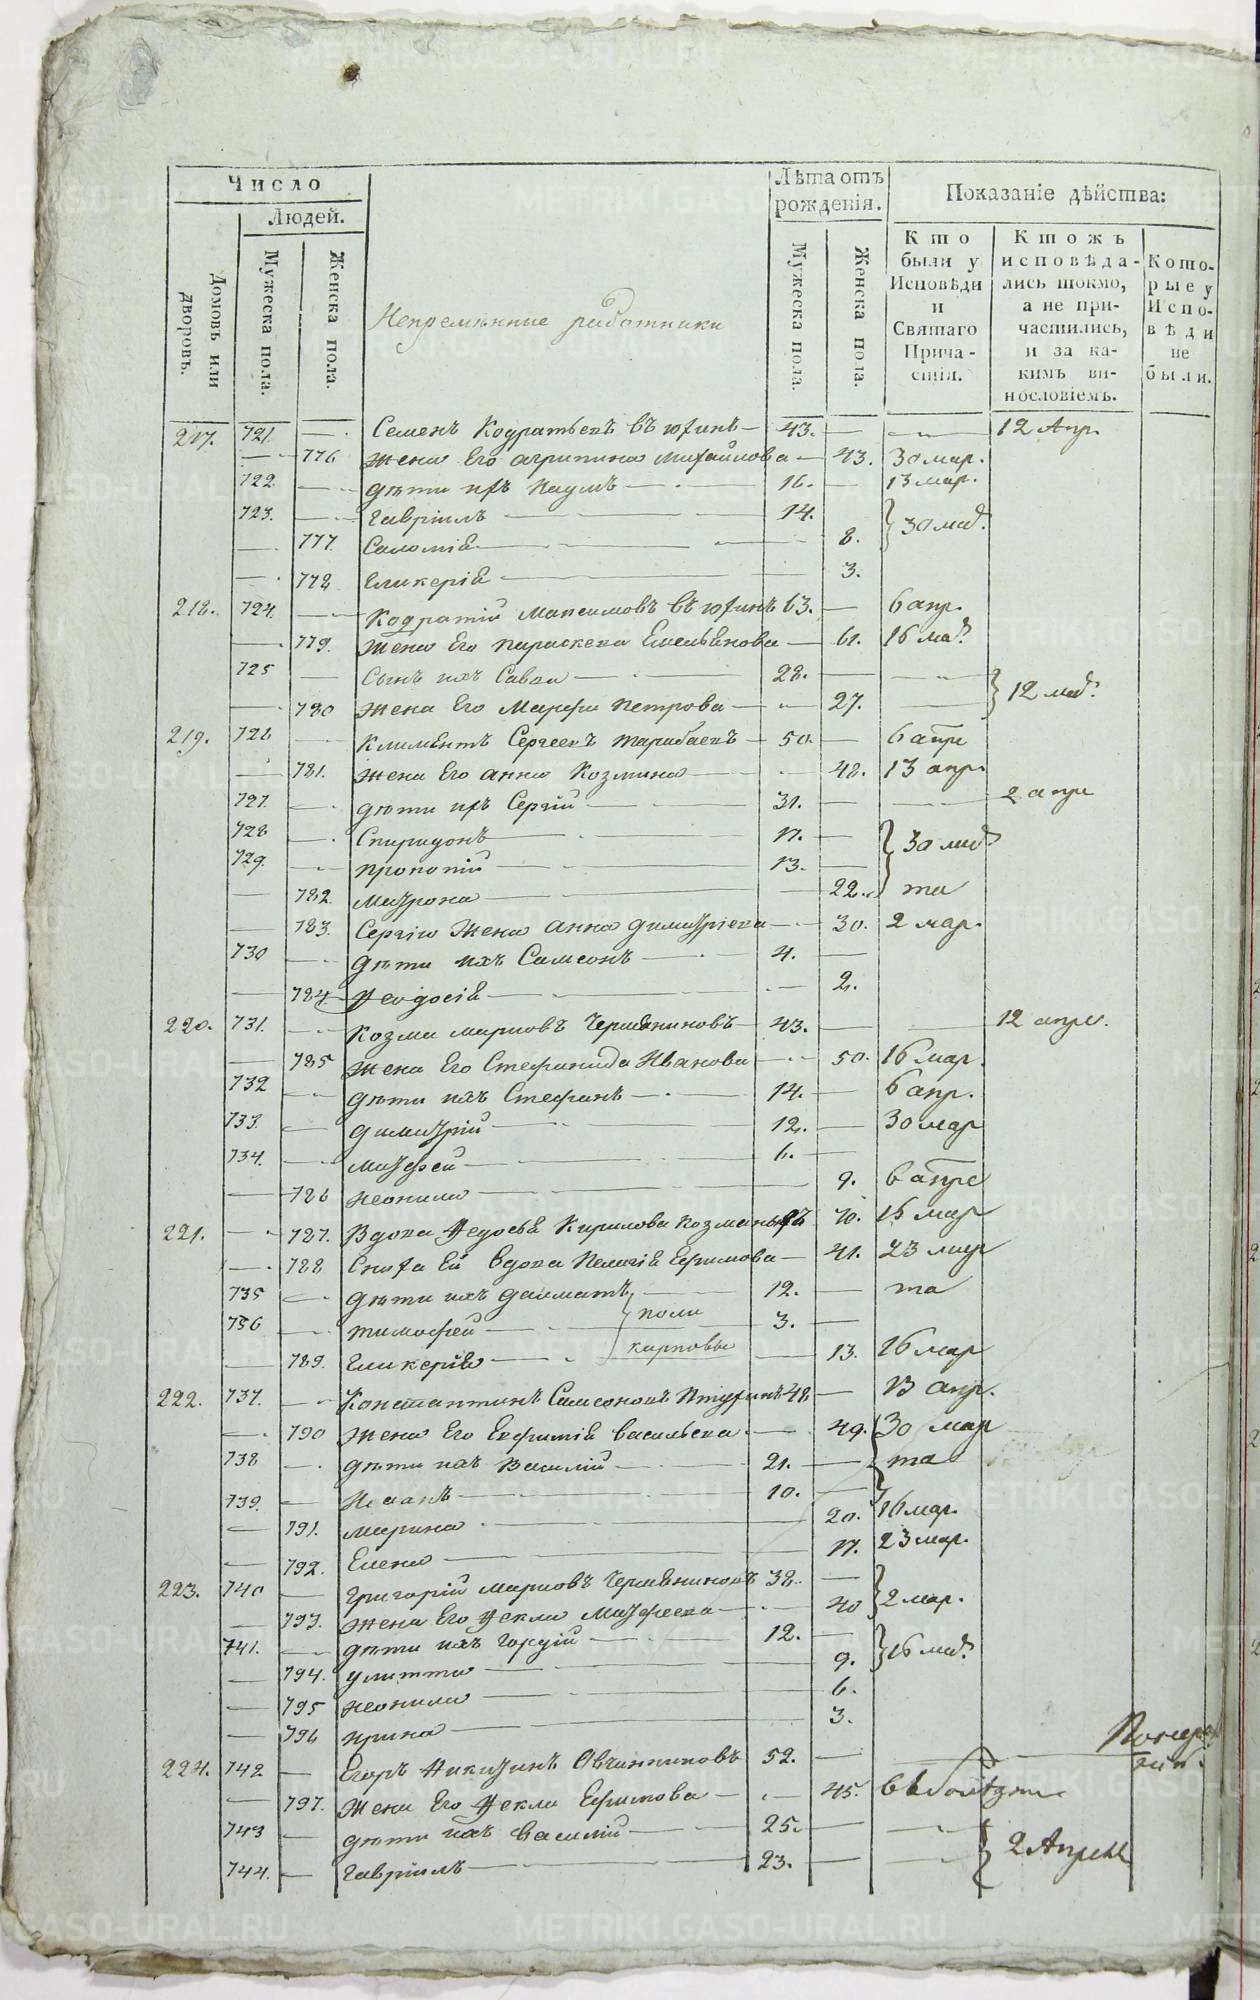 Число
Людей.
Домовъ или дворовъ.
Мужеска пола.
Женска пола.
Непремѣнные работники
Лѣта отъ рожденія.
Мужеска пола.
Женска пола.
Показаніе дѣйства:
Кто были у Исповѣди и Святаго Прича-стія.
Ктожъ исповѣда-лись токмо, а не при-частились, и за ка-кимъ ви-нословіемъ.
Кото-рые у Испо-вѣди не были.
217. 721. Семенъ Кодратьевъ 43. 12 Апр.
776 жена Его агрипина михайлова 43. 30 мар.
722. дѣти ихъ наумъ 16. 13 мар.
723. гавріилъ 14. 30 мар.
777. Саломія 8.
778 гликерія 3.
218. 724. Кодратій Максимовъ 63. 6 апр.
779. жена Его параскева Емельянова 61. 16 мар.
725 Сынъ ихъ Савва 28. 12 мар.
780 жена Его Марфа петрова 27.
219. 726 Климентъ Сергеевъ тарабаевъ 50. 6 апре
781. жена Его анна Козмина 48. 13 апр.
727. дѣти ихъ Сергій 31. 2 апре
728 Спиридонъ 17. 30 мар
729. прокопій 13.
782. матрона 22. та
783. Сергія жена анна димитріева 30. 2 мар.
730 дѣти ихъ Самсонъ 4.
784 Ѳеодосія 2.
220. 731. Козма марковъ 43. 12 апре.
785 жена Его Стефанида Иванова 50. 16 мар.
732 дѣти ихъ Стефанъ 14. 6 апр.
733. димитрій 12. 30 мар
734. матфей 6.
786 неонила 9. 6 апре
221. 787. Вдова Ѳедосья Кирилова 70. 16 мар
788 Сноха Ей вдова Пелагія Ефимова 41. 23 мар
735 дѣти ихъ далматъ 12. та
736 тимофей поли 3.
789. гликерія карповы 13. 16 мар
222. 737. Константинъ Самсоновъ 48 13 апр.
790 жена Его Евфимія васильева 49. 30 мар
738 дѣти ихъ Василій 21. та
739. Исаакъ 10.
791. марина 20. 16 мар.
792. Елена 17. 23 мар.
223. 740 григорій марковъ 38. 2 мар.
793. жена Его Ѳекла матфеева 40
741. дѣти ихъ гордій 12. 16 мар.
794. улитта 9.
795 неонила 6.
796 ирина 3.
224. 742 Егоръ никитинъ Овчинниковъ 52.
797. жена Его Ѳекла Ефимова 45.
743 дѣти ихъ василій 25. 2 Апреля
744. гавріилъ 23.
METRIKI.GASO-URAL.RU